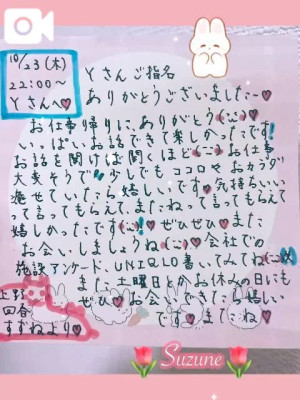 10/23(木)
22:00〜
Yさんへ♡
Yさんご指名
ありがとうございました〜♡
お仕事帰りに、ありがとう(¨̮)
いっぱいお話できて楽しかったです!
お話を聞けば聞くほど(¨̮)お仕事
大変そうで 少しでもココロやおカラダ
癒せていたら嬉しいです。気持ちいい
って言ってもらえて、またねって言ってもらえて
嬉しかったです(¨̮)!ぜひぜひ♡また
お会いしましょうね(¨̮)♡会社での
施設アンケート、UNIQLO書いてみてね(¨̮)
また土曜日とかお休みの日にも
ぜひ♡お会いできたら嬉しい
です♡またね♡
上野
四谷
すずねより♡
Suzune